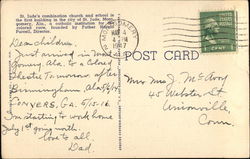 St. Jude's combination church and school is
the first building in the city of St. Jude, Mont-
gomery, Ala., a catholic institution for the
colored race, founded by Father Harold
Purcell, Director.
POST CARD
Dear Children.
Just arrived in
Ala. to a Colored
Theatre Tomorrow after
Birmingham Ala 5/
Conyers, Ga. 5/15-16.
Im starting to work home
July 1st going north.
Love to all
Dad.
Mr & Mrs J. McAvoy
45 Webster St
Unionville
Conn.